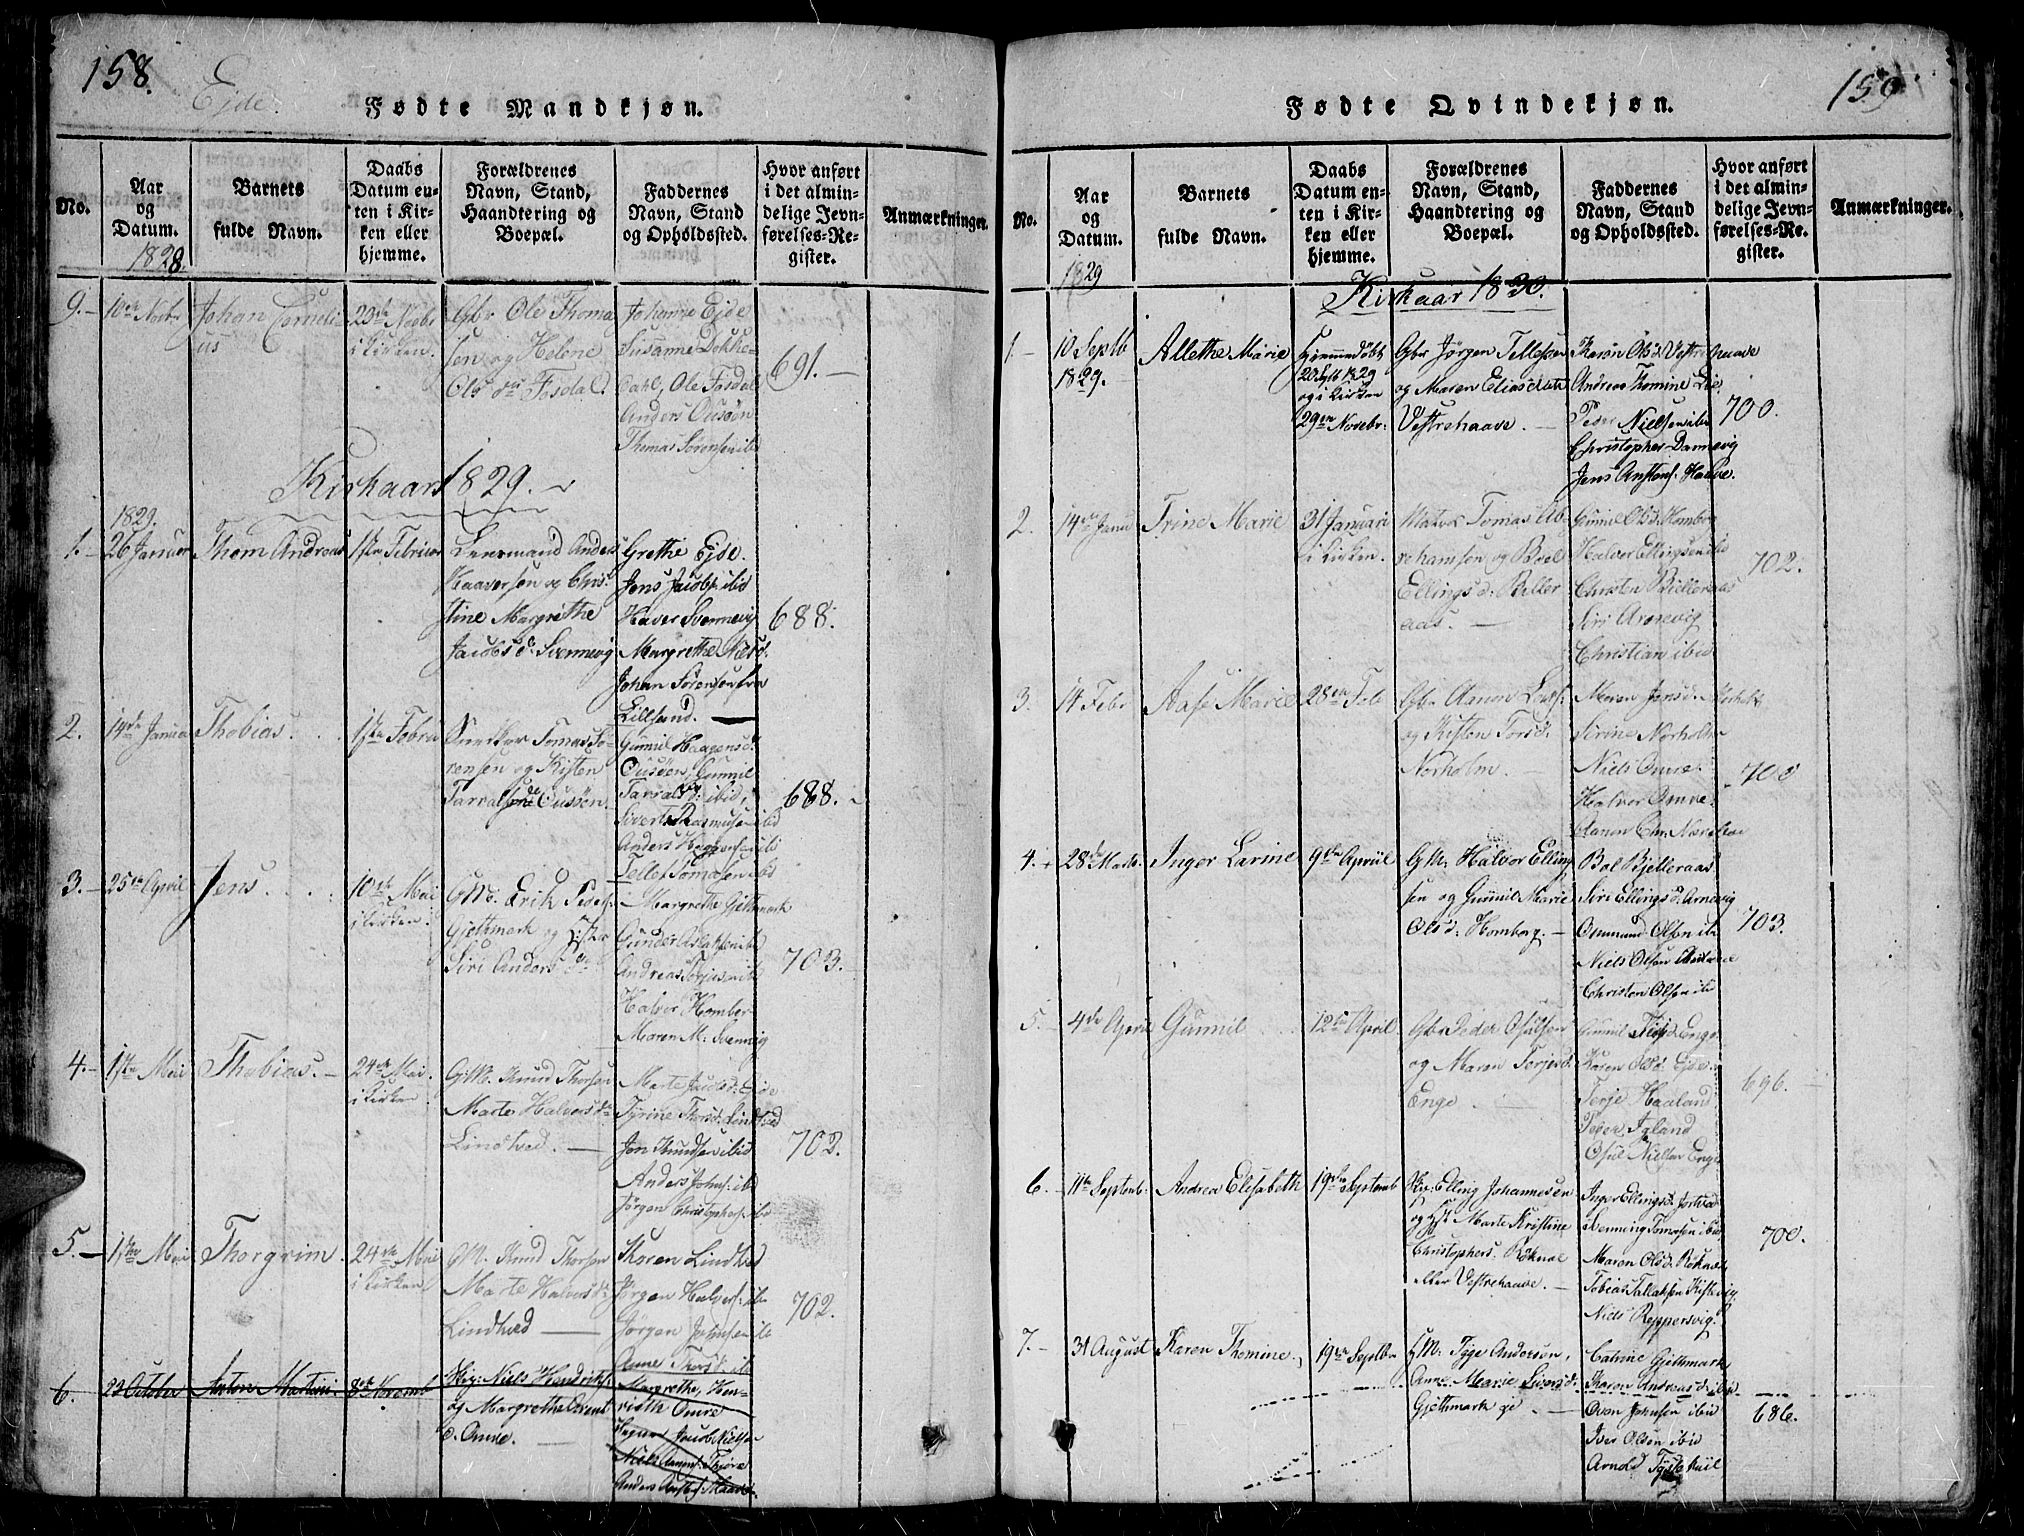 158.
Ejde.
Fødte Mandkjøn.
No.
Aar
og
Datum.
1828.
Barnets
fulde Navn.
Daabs
Datum en-
ten i Kir-
ken eller
hjemme.
Forældrenes
Navn, Stand,
Haandtering og
Boepæl.
Faddernes
Navn, Stand
og Opholdssted.
Hvor anført
i det almin-
delige Jevn-
førelses-Re-
gister.
Anmærkninger.
9.
10de Novbr
Johan Corneli-
us
23de Novbr
i Kirken.
Gbr Ole Thoma
sen og Helene
Ols dr Fosdal.
Johanne Ejde
Susanne Dokke-
Dahl, Ole Fosdal
Anders Ousøen
Thomas Sørensen ibid
691.
Kirkaar 1829.
1829.
1.
26 Januar
Thom Andreas
1ste Februar
Lensmand Anders
Haaversen og Chri-
stine Margrethe
Jacobsd: Svennevig
Grethe Ejde.
Jens Jacobs: ibid
Haver Svennevig
Margrethe Nielsd.
Johan Sørensen fra
Lillesand.
688.
2.
14de Januar
Thobias.
1ste Febru
Snedker Tomas Sö-
rensen og Kisten
Tarvalsde Oussøn.
Gunnil Haagensd.
Ousøen, Gunnil
Tarvalsd: ibid,
Sivert Rasmusen ibid
Anders Haagensen ibid
Tellef Tomasen ibd
688.
3.
25de April
Jens
10de Mai
i Kirken.
GM. Erik Peders.
Gjethmark og Hustrue
Siri Andersd
Margrethe Gjethmark
Gunder Aslaksen ibid
Andreas Terjesen ib
Halvor Homber
Maren M: Svennvig
703.
4.
1ste Mai
Thobias.
24de Mai.
i Kirken
GM. Knud Thorsen
Marte Halvorsdr
Lindtved.
Marte Jacobsd: Ejde
Tyrine Thorsd: Lindtved
Jon Knudsen ibid
Anders Johns: ibd
Jørgen Christophers: ibd
702.
5.
1ste Mai
Thorgrim.
24de Mai
i Kirken
GM. Knud Thorsen
Marte Halvorsd:
Lindtved
Karen Lindtved
Jørgen Halvors: ibd
Jørgen Johnsen ib
Anne Thorsd: ib
702.
6.
29 October
Anton Martin.
8de Novemb
Huj: Niels Hendriks:
og Margrethe
d. Omre.
Margrethe, Hen-
rieth Omre
Jacob Nielsen
Niels
Anders
159
Fødte Qvindekjøn.
No.
Aar
og
Datum.
1829
Barnets
fulde Navn.
Daabs
Datum en-
ten i Kir-
ken eller
hjemme.
Forældrenes
Navn, Stand,
Haandtering og
Boepæl.
Faddernes
Navn, Stand
og Opholdssted.
Hvor anført
i det almin-
delige Jevn-
førelses-Re-
gister.
Anmærkninger.
Kirkaar 1830.
1
10 Septb
1829.
Allethe Marie
Hjemmedøbt
20 Septb 1829
og i Kirken
29de Novebr.
Gbr Jørgen Tellefsen
og Maren Eliasdatr
Vestrehaave.
Karen Olsd Vestrehaave
Andrea Thomine Lie
Peder Nielsen ibid
Christopher Dannevig
Jens Anstens. Haave.
700.
2.
14de Janu
Trine Marie
31 Januari
i Kirken.
Matros Tomas Ab-
rehamsen og Boel
Ellingsd: Beller
aas.
Gunnil Olsd. Homborg
Halvor Ellingsen ibid
Christen Bielleraas
Siri Arnevig
Christian ibid
702.
3.
14 Febr
Aase Marie
28de Feb
Gbr Aanon Lars:
og Kisten Torsd:
Norholm.
Maren Jensd:
Sirine Norholm
Niels Omre
Halvor Omre.
Aanon Chr.
700
4.
28de Marts
Inger Larine
9de Apriil
GM: Halvor Elling
sen og Gunnil Marie
Olsd: Homborg.
Bol Bjelleraas
Siri Ellingsd: Arnevig
Ommund Olsen ib
Niels Olsen
Christen Olsen ib
703.
5.
4de April
Gunnil
12te April
Gbr Peder Osulsen
og Maren Terjesd:
Enge.
Gunnil Enge
Karen Olsd Ejde
Terje Haaland
Peder Igland
Osul Nielsen Enge
696.
6.
11te Septemb.
Andrea Elisabeth
19de Septemb
Elling Johannesen
og Hst Marte Kristine
Christophers: Røknæs
eller Vestrehaave.
Inger Ellingsd: Jortved
Svenning Tomassen ibid
Maren Olsd Røknæs
Tobias Tallaksen Kistevig
Niels Reppersvig.
700.
7.
31 August
Karen Thomine
19de Septbr
HM: Tyge Andersen,
Anne Marie Siversd:
Gjethmark
Catrine Gjethmark
Karen Andreasd: ibid
Oven Johnsen ibid
Iver Olsen ibid
Arnold
686.